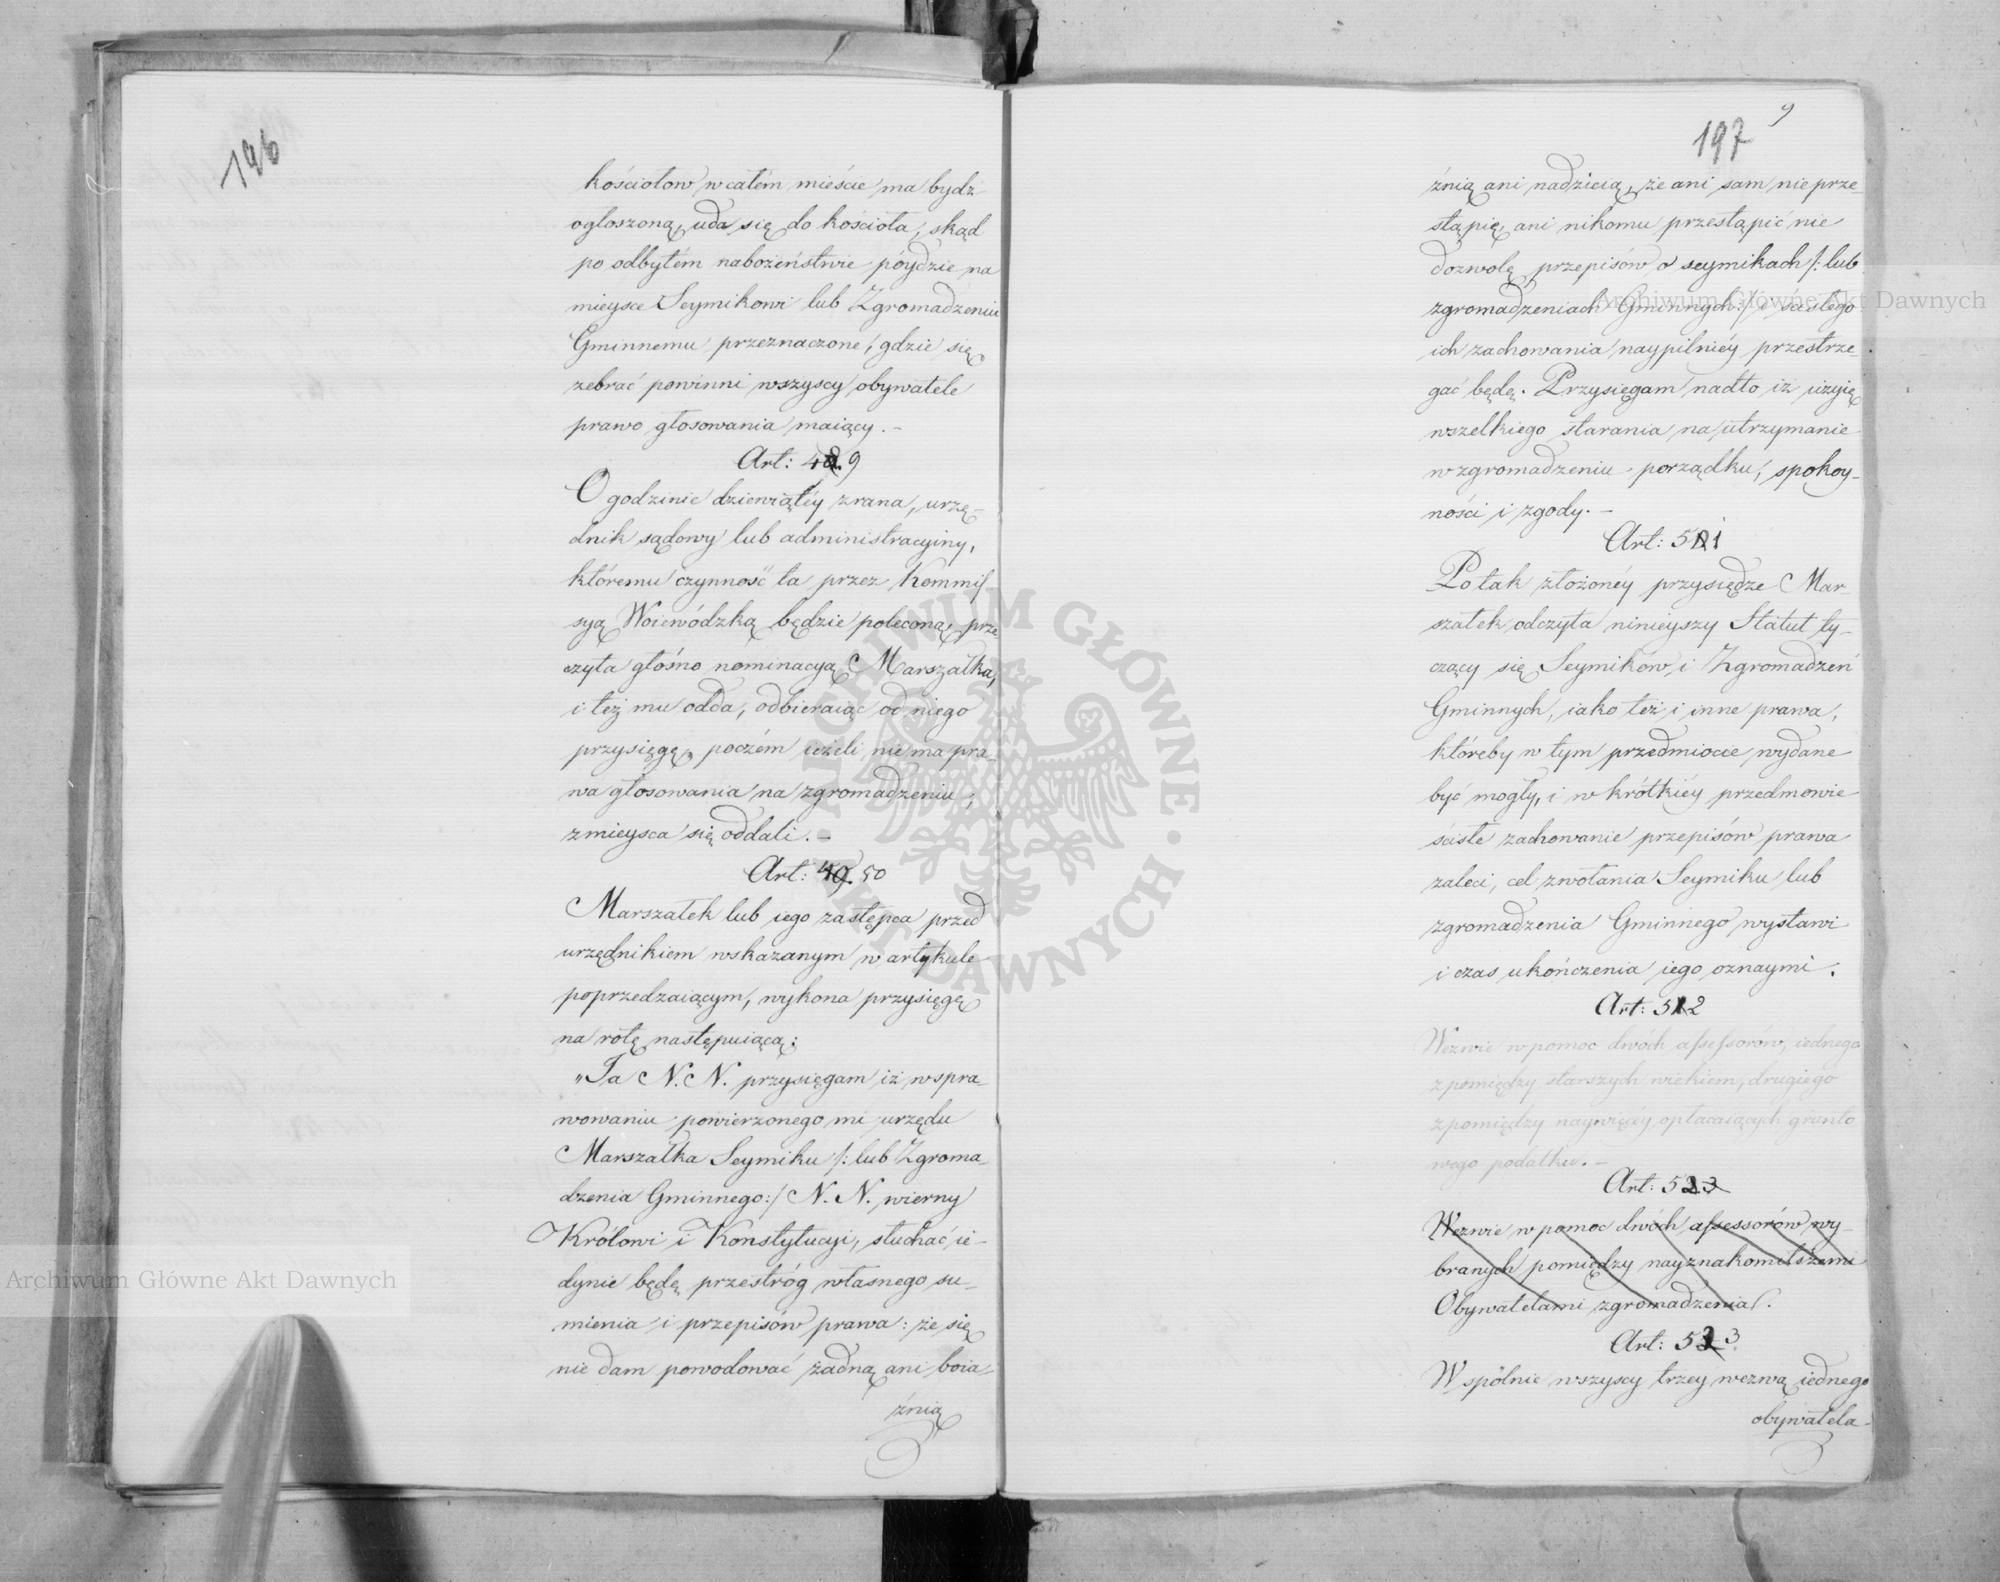 196
kościołow w całém mieście ma bydź
ogłoszoną, uda się do kościoła, skąd
po odbytém nabożeństwie póydzie na
mieysce Seymikowi lub Zgromadzeniu
Gminnemu przeznaczone, gdzie się
zebrać powinni wszyscy obywatele
prawo głosowania maiący. –
Art: 48. 9
O godzinie dziewiątéy zrana, urzę-
dnik sądowy lub administracyiny,
któremu czynność ta przez Kommis
syą Woiewódzką będzie poleconą, prze
czyta głośno nominacyą Marszałka,
i też mu odda, odbieraiąc od niego
przysięgę, poczém ieżeli nie ma pra-
wa głosowania na zgromadzeniu,
z mieysca się oddali. –
Art: 49. 50
Marszałek lub iego zastępca przed
urzędnikiem wskazanym w artykule
poprzedzaiącym, wykona przysięgę
na rotę następuiącą:
"Ja N. N. przysięgam iż w spra-
wowaniu powierzonego mi urzędu
Marszałka Seymiku /: lub Zgroma-
dzenia Gminnego :/ N. N. wierny
Królowi i Konstytucyi, słuchać ie-
dynie będę przestróg własnego su-
mienia i przepisów prawa: że się
nie dam powodować żadną ani boia-
źnią
197
9
źnią ani nadzieią, że ani sam nie prze-
stąpię, ani nikomu przestąpić nie
dozwolę przepisów o seymikach /: lub
zgromadzeniach Gminnych :/ i ścisłego
ich zachowania naypilniéy przestrze-
gać będę. Przysięgam nadto iż użyię
wszelkiego starania na utrzymanie
w zgromadzeniu porządku, spokoy-
ności i zgody. –
Art: 501
Po tak złożonéy przysiędze Mar-
szałek odczyta ninieyszy Statut ty-
czący się Seymików i Zgromadzeń
Gminnych, iako też i inne prawa,
któreby w tym przedmiocie wydane
być mogły, i w krótkiéy przedmowie
ścisłe zachowanie przepisów prawa
zaleci, cel zwołania Seymiku lub
zgromadzenia Gminnego wystawi
i czas ukończenia iego oznaymi.
Art: 512
Wezwie w pomoc dwóch assessorów, iednego
z pomiędzy starszych wiekiem, drugiego
z pomiędzy naywięcéy opłacaiących grunto
wego podatku. –
Art: 523
Wezwie w pomoc dwóch assessorów wy-
branych pomiędzy nayznakomitszemi
Obywatelami zgromadzenia.
Art: 533
Wspólnie wszyscy trzey wezwą iednego
obywatela-
Archiwum Główne Akt Dawnych
Archiwum Główne Akt Dawnych
ARCHIWUM GŁÓWNE · AKT DAWNYCH ·